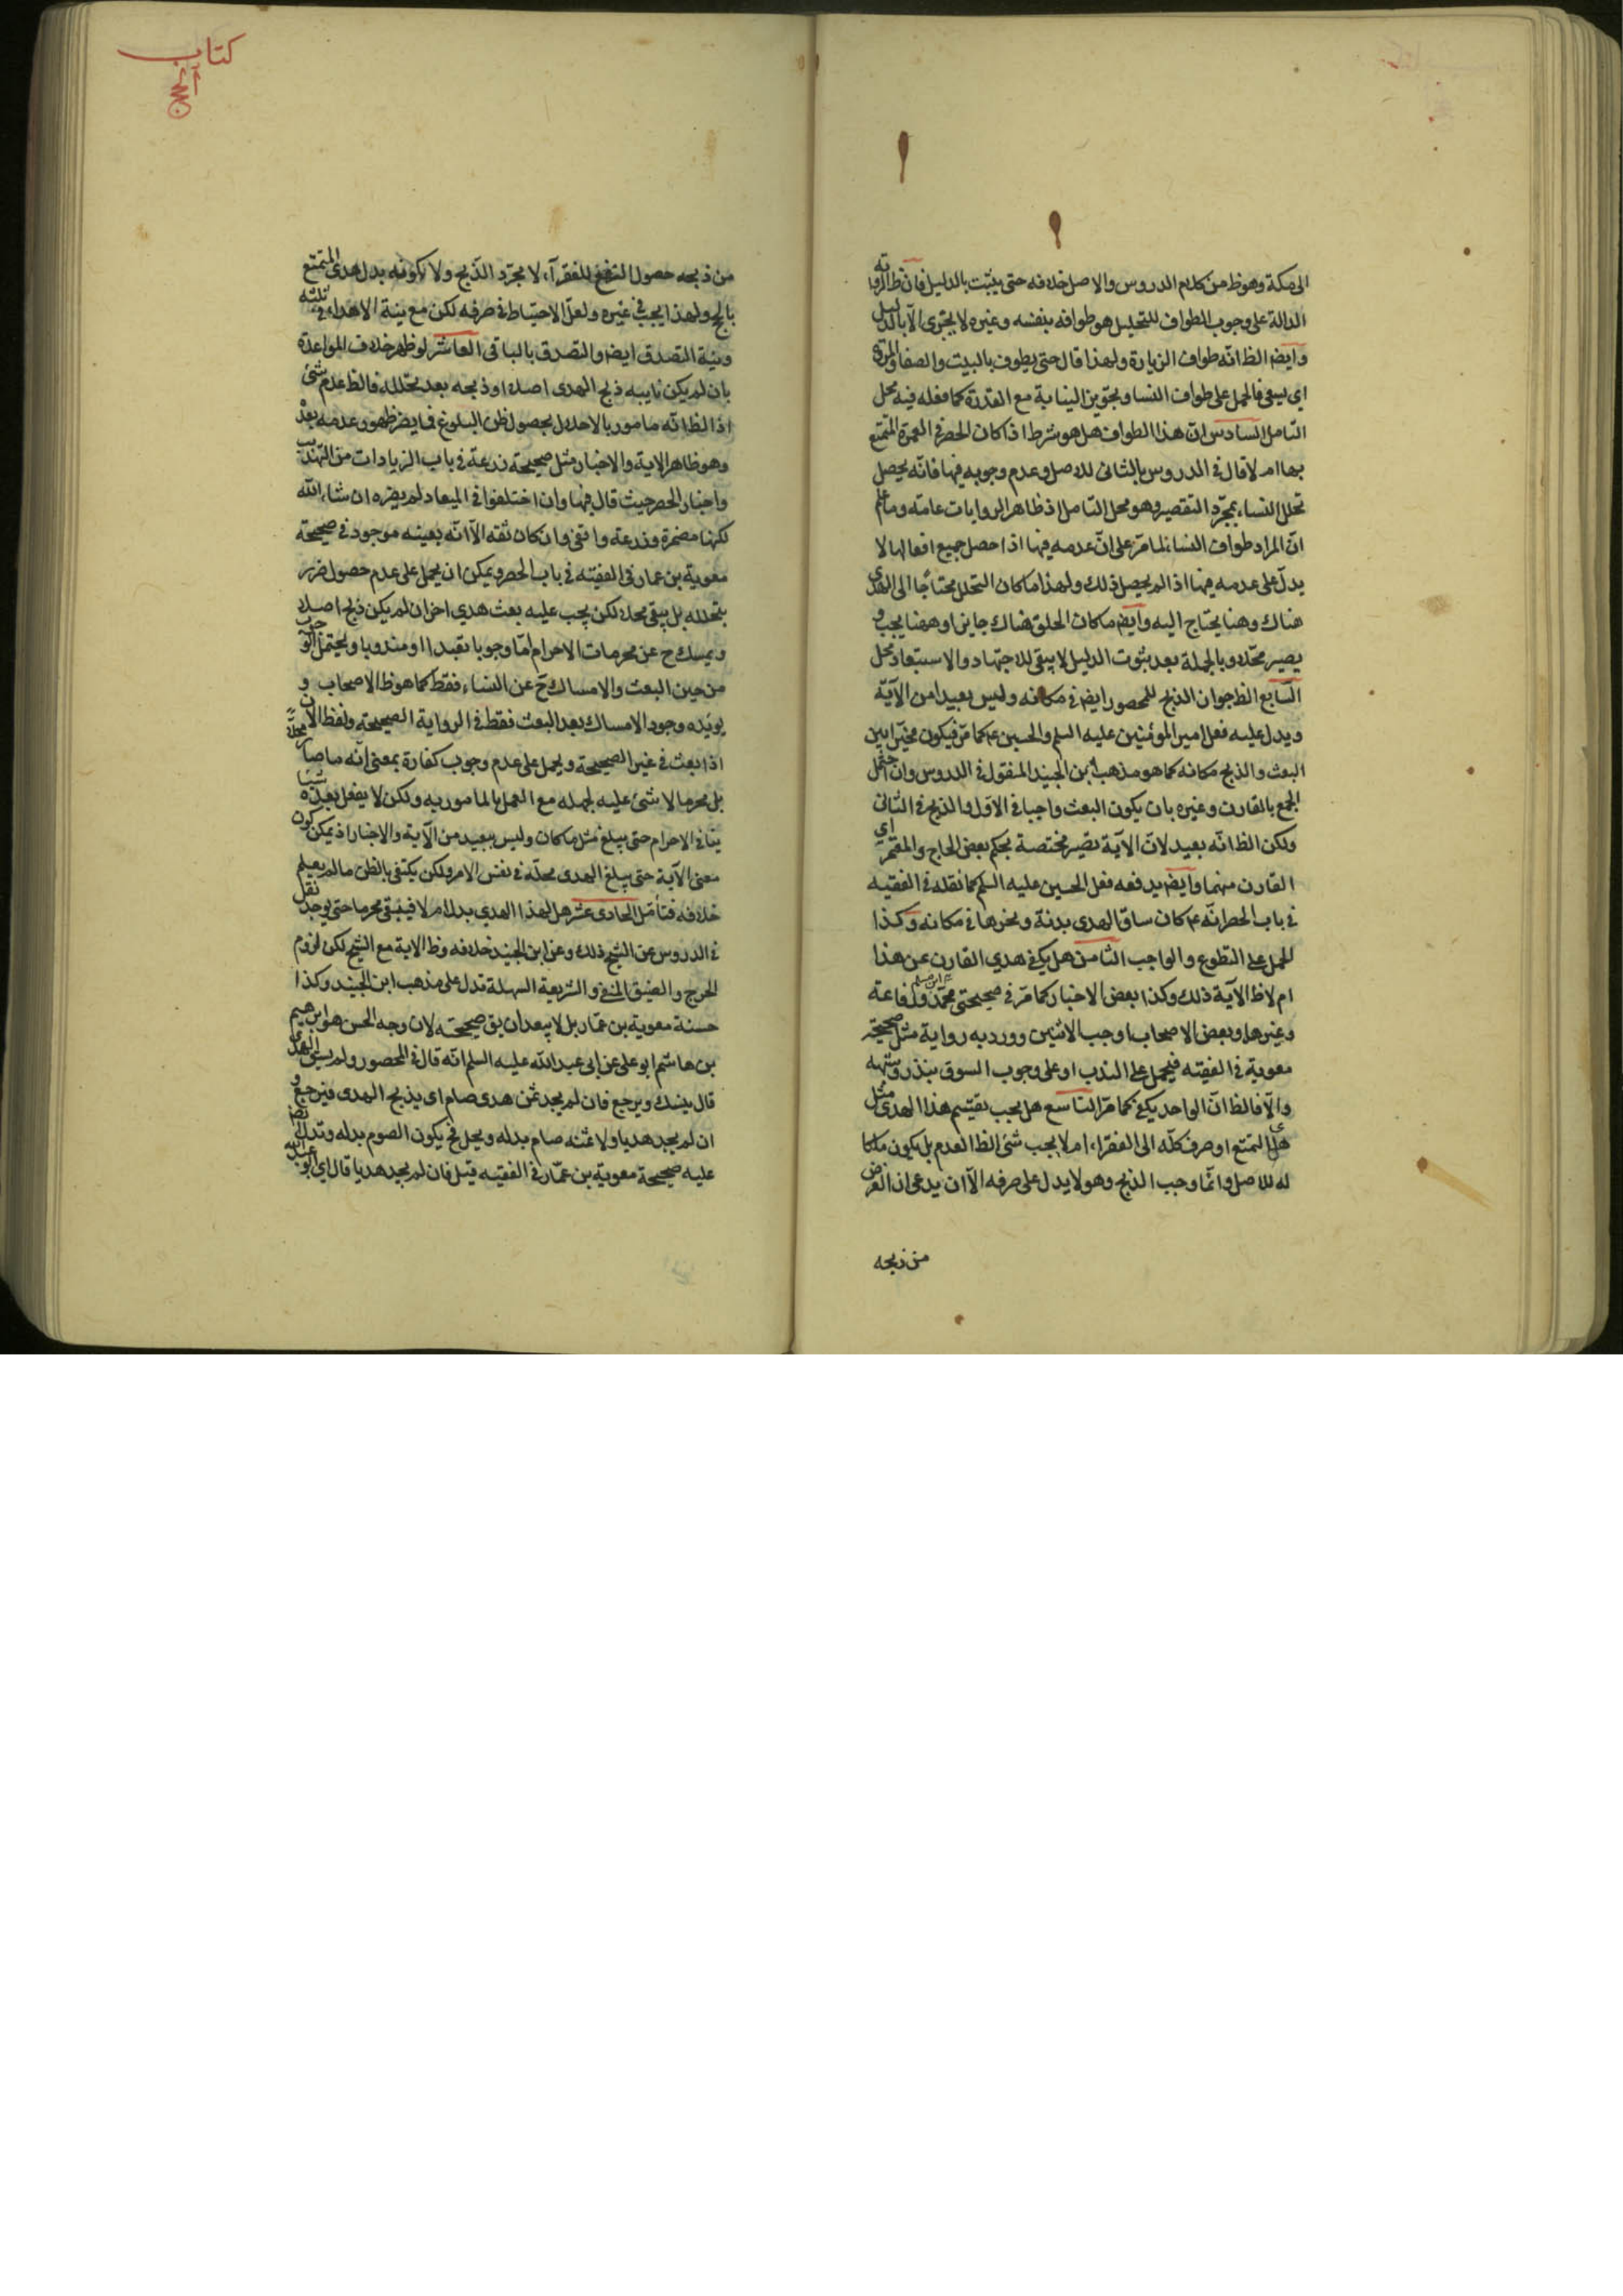 الى مكة وهو ظ من كلام الدروس والاصل خلافه حتى يثبت بالدليل فان ظ الروايه
الدالة على وجوب الطواف للتحليل هو طوافه بنفسه وغيره لا يجزى الا بالدليل
وايضا الظ انه طواف الزيارة ولهذا قال حتى يطوف بالبيت والصفا والمروة
اى يسعى فالحمل على طواف النسا وتجويز النيابة مع القدرة كما فعله فيه محل
التامل السادس ان هذا الطواف هل هو شرط اذا كان الحصر فى العمرة المتمتع
بها ام لا قال فى الدروس بالثانى للاصل وعدم وجوبه فيها فانه يحصل
تحلل النساء بمجرد التقصير وهو محل التامل اذ ظاهر الروايات عامة وما علم
ان المراد طواف النساء لما مر على ان عدمه فيها اذا حصل جميع افعالها لا
يدل على عدمه فيها اذا لم يحصل ذلك ولهذا ما كان التحلل محتاجا الى الهدى
هناك وهنا يحتاج اليه وايضا ما كان الحلق هناك جايزا وههنا يجب و
يصير محللا وبالجملة بعد ثبوت الدليل لا يبقى للاجتهاد والاستبعاد محل
السابع الظ جواز الذبح للمحصور ايضا فى مكانه وليس ببعيد من الآية
ويدل عليه فعل امير المؤمنين عليه السلم والحسين ع كما مر فيكون مخيرا بين
البعث والذبح مكانه كما هو مذهب ابن الجنيد المنقول فى الدروس وان احتمل
الجمع بالقارن وغيره بان يكون البعث واجبا فى الاول والذبح فى الثانى
ولكن الظ انه بعيد لان الآية تصير مختصة بحكم بعض الحاج والمعتمر اى
القارن منهما وايضا يدفعه فعل الحسين عليه السلم كما نقله فى الفقيه
فى باب الحصر انه ع كان ساق الهدى بدنة ونحرها فى مكانه وكذا
الحمل على التطوع والواجب الثامن هل يكفى هدي القارن عن هذا
ام لا ظ الآية ذلك وكذا بعض الاخبار كما مر فى صحيحتى محمد بن مسلم ورفاعة
وغيرها وبعض الاصحاب اوجب الاثنين وورد به رواية مثل صحيحة
معوية فى الفقيه فيحمل على الندب او على وجوب السوق بنذر وشبهه
والا فالظ ان الواحد يكفى كما مر التاسع هل يجب تقسيم هذا الهدى مثل
هدى التمتع او صرف كله الى الفقراء ام لا يجب شئ الظ العدم بل يكون ملكا
له للاصل وانما وجب الذبح وهو لا يدل على صرفه الا ان يدعى ان الغرض
من ذبحه
كتاب
من ذبحه حصول النفع للفقرآء لا مجرد الذبح ولا لكونه بدل هدى التمتع
بالحج ولهذا يجب فى غيره ولعل الاحتياط فى صرفه لكن مع نية الاهداء فى ثلثه
ونية التصدق ايضا والتصدق بالباقى العاشر لو ظهر خلاف المواعدة
بان لم يكن نايبه ذبح الهدى اصلا او ذبحه بعد تحلله فالظ عدم شئ
اذ الظ انه مامور بالاحلال بحصول ظن البلوغ فما يضر ظهور عدمه بعد
وهو ظاهر الاية والاخبار مثل صحيحة زرعة فى باب الزيادات من التهذيب
واخبار الحصر حيث قال فيها وان اختلفوا فى الميعاد لم يضره ان شاء الله
لكنها مضمرة وزرعة واقفى وان كان ثقه الا انه بعينه موجود فى صحيحة
معوية بن عمار فى الفقيه فى باب الحصر ويمكن ان يحمل على عدم حصول ضرر
بتحلله بل يبقى محلا لكن يجب عليه بعث هدى اخر ان لم يكن ذبح اصلا
ويمسك ح عن محرمات الاحرام اما وجوبا تعبدا او مندوبا ويحتمل الوجوب
من حين البعث والامساك ح عن النساء فقط كما هو ظ الاصحاب و
يؤيده وجود الامساك بعد البعث فقط فى الرواية الصحيحة ولفظ الان
اذا بعث فى غير الصحيحة ويحمل على عدم وجوب كفارة بمعنى انه ما صار محلا
بل محرما لا شئ عليه لجهله مع العمل بالمامور به ولكن لا يفعل بعده شيئا
ينافى الاحرام حتى يبلغ مثل ما كان وليس ببعيد من الآية والاخبار اذ يمكن كون
معنى الآية حتى يبلغ الهدى محله فى نفس الامر ولكن يكتفى بالظن ما لم يعلم
خلافه فتأمل الحادى عشر هل لهذا الهدي بدل ام لا فيبقى محرما حتى يوجد نقل
فى الدروس عن الشيخ ذلك وعن ابن الجنيد خلافه وظ الاية مع الشيخ لكن لزوم
الحرج والضيق المنفى والشريعة السهلة تدل على مذهب ابن الجنيد وكذا
حسنة معوية بن عمار بل لا يبعد ان يق صحيحته لان وجه الحسن هو ابرهيم
بن هاشم ابو على عن ابى عبد الله عليه السلم انه قال فى المحصور ولم يسق الهدى
قال ينسك ويرجع فان لم يجد ثمن هدى صام اى يذبح الهدى فيرجع و
ان لم يجد هديا ولا ثمنه صام بدله ويحل فح يكون الصوم بدله وتدل ايضا
عليه صحيحة معوية بن عمار فى الفقيه قيل فان لم يجد هديا قال اى ابو عبد الله